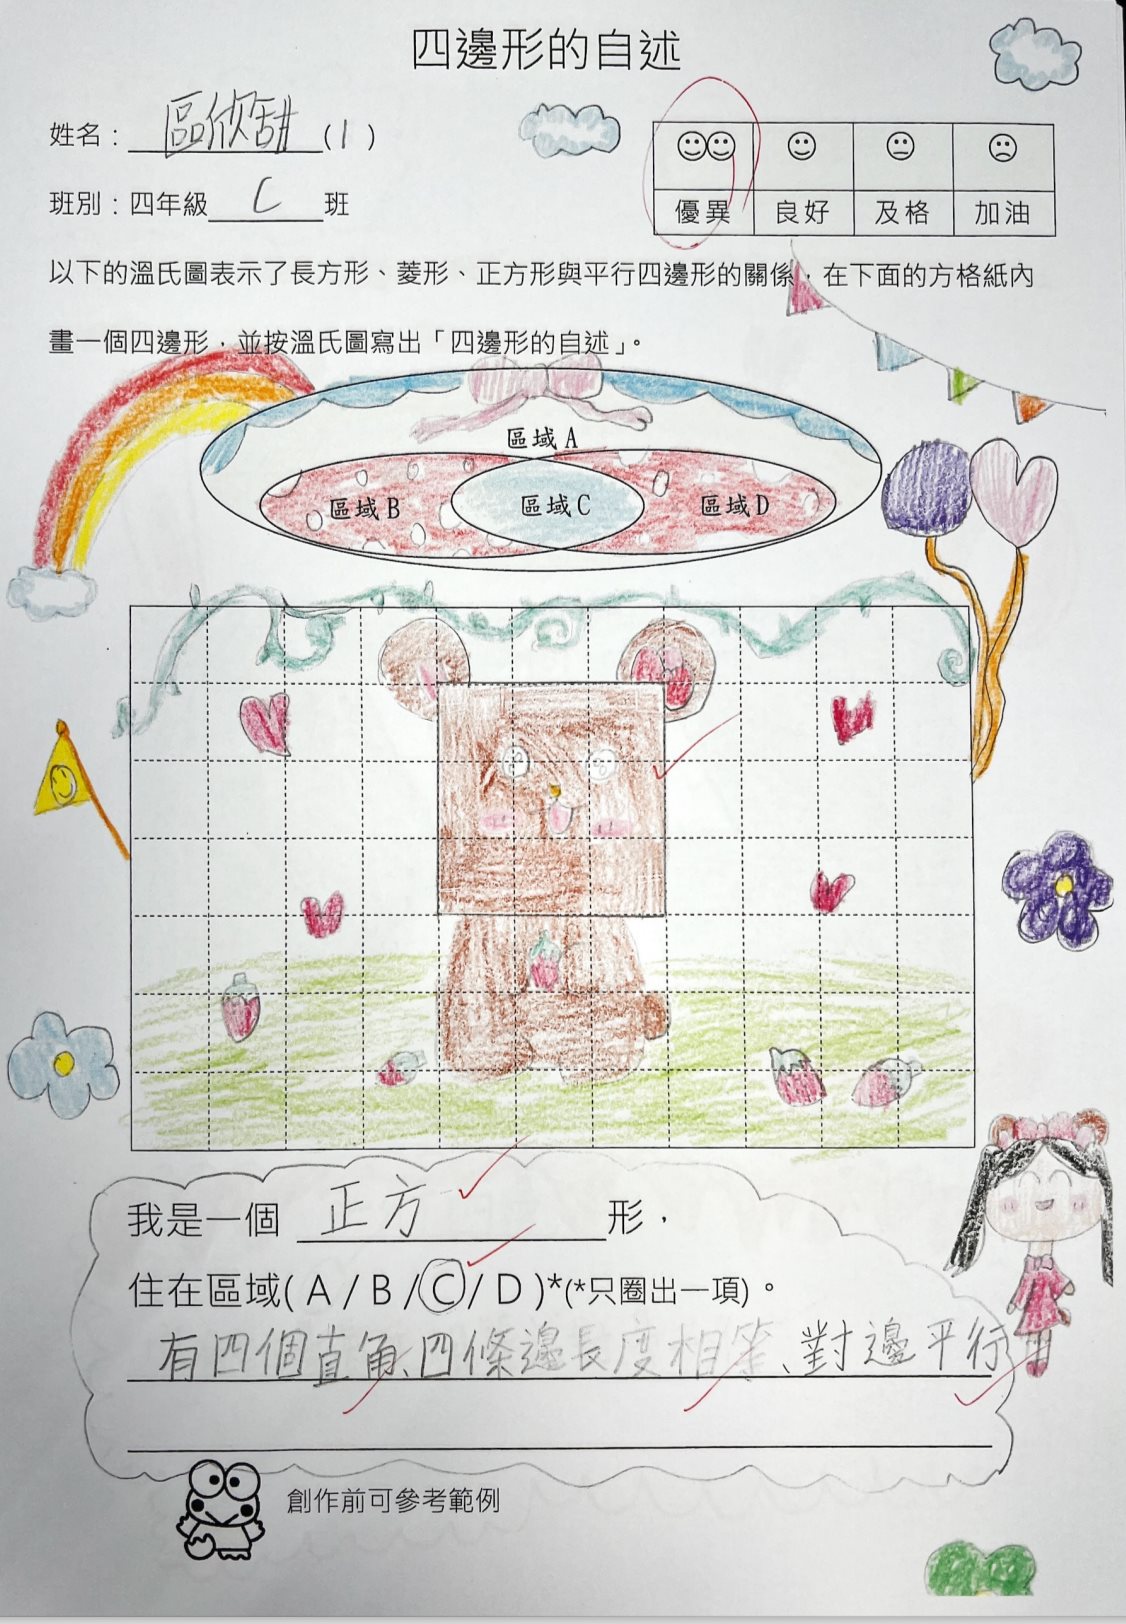 四邊形的自述
姓名：區欣甜(1)
班別：四年級C班
優異 良好 及格 加油
以下的溫氏圖表示了長方形、菱形、正方形與平行四邊形的關係，在下面的方格紙內
畫一個四邊形，並按溫氏圖寫出「四邊形的自述」。
區域A
區域B 區域C 區域D
我是一個 正方 形，
住在區域( A / B / C / D )*(*只圈出一項)。
有四個直角、四條邊長度相等、對邊平行
創作前可參考範例